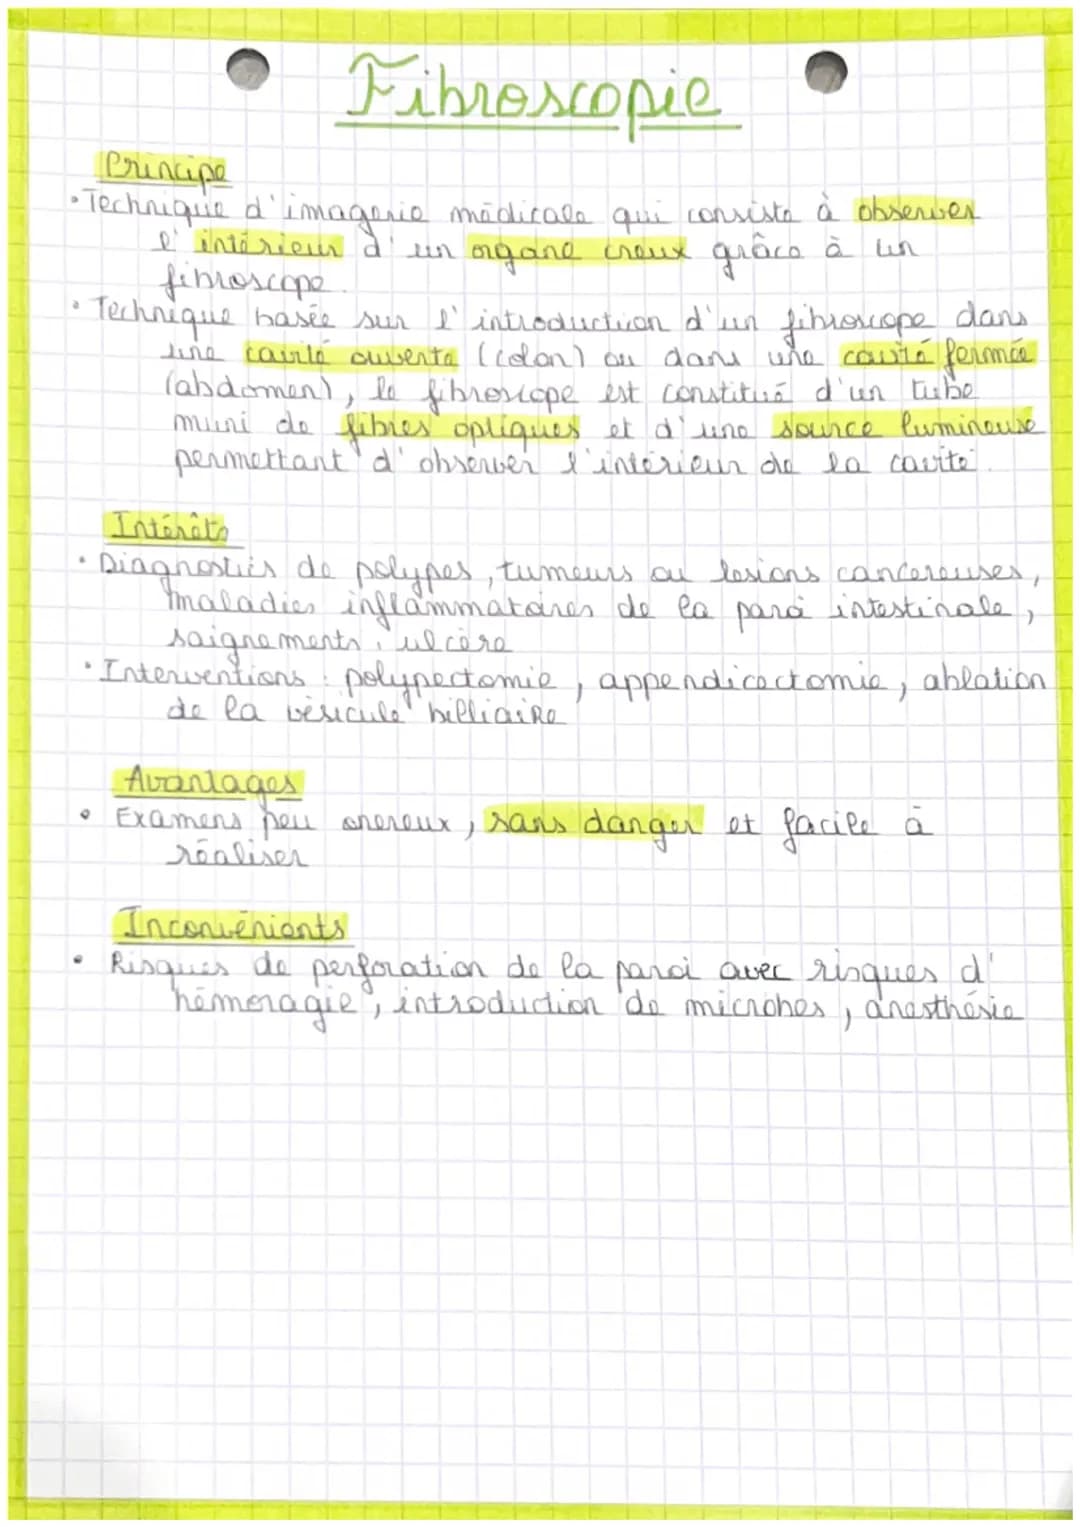 Fibroscopie
Principe
• Technique d'imagerie médicale qui consiste à observer
l'intérieur d'un organe creux grâce à un
fibroscope.
• Technique basée sur l'introduction d'un fibroscope dans
une cavité ouverte (colon) ou dans une cavité fermée
(abdomen), le fibroscope est constitué d'un tube
muni de fibres optiques et d'une source lumineuse
permettant d'observer l'intérieur de la cavité.
Intérêts
• Diagnostics de polypes, tumeurs ou lesions cancereuses,
maladies inflammatoires de la paroi intestinale,
saignements, ulcère
• Interventions : polypectomie, appendicectomie, ablation
de la vésicule billiaire
Avantages
• Examens peu onereux, sans danger et facile à
réaliser
Inconvénients
• Risques de perforation de la paroi avec risques d'
hémoragie, introduction de microbes, anesthésie